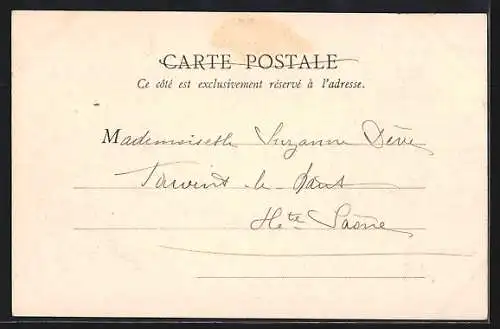 CARTE POSTALE
Ce côté est exclusivement réservé à l'adresse.
Mademoiselle Suzanne
le
Hte Saône